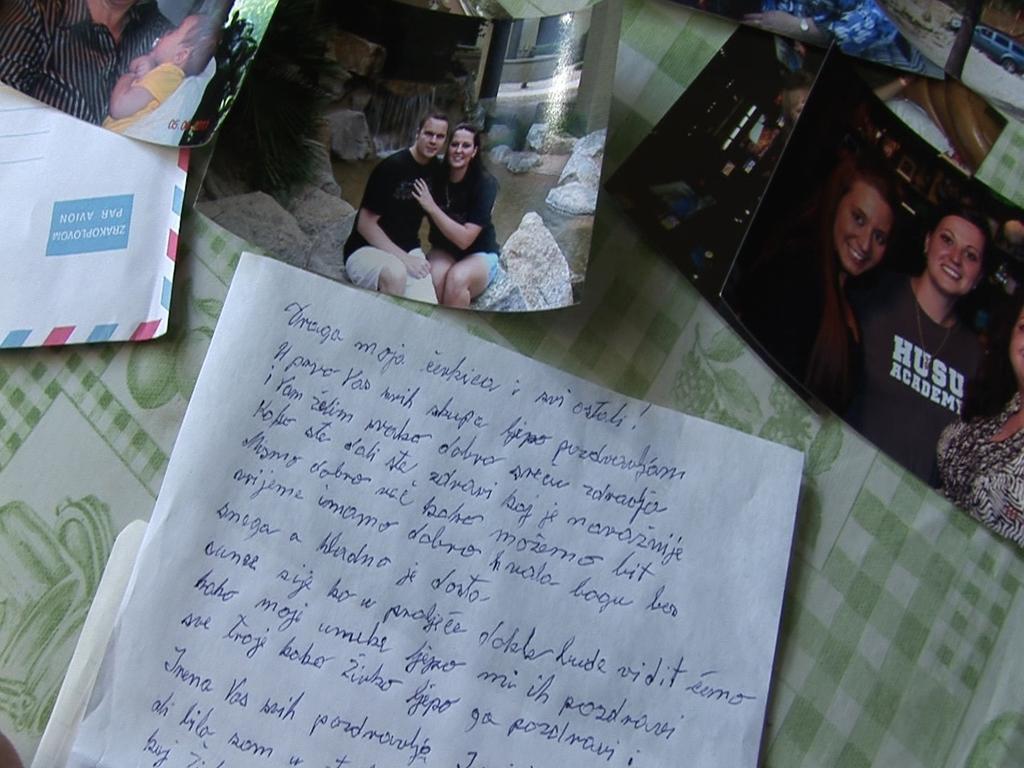 05.06.2011
ZRAKOPLOVOM
PAR AVION
HUSU
ACADEMY
Draga moja ćerkica i svi ostali!
U prvo Vas svih skupa ljepo pozdravljam
i Vam želim svako dobro sreću zdravlja
Kako ste dali ste zdravi koj je navažnije
Mismo dobro već kako možemo bit
vrijeme imamo dobro hvala bogu bez
snega a hladno je dosta
sunce sije ko u proljeće dokle bude vidit ćemo
kako moji unuke ljepo mi ih pozdravi
sve troje kako Živko ljepo ga pozdravi i
Irena Vas svih pozdravlja
ali bila sam u
koj